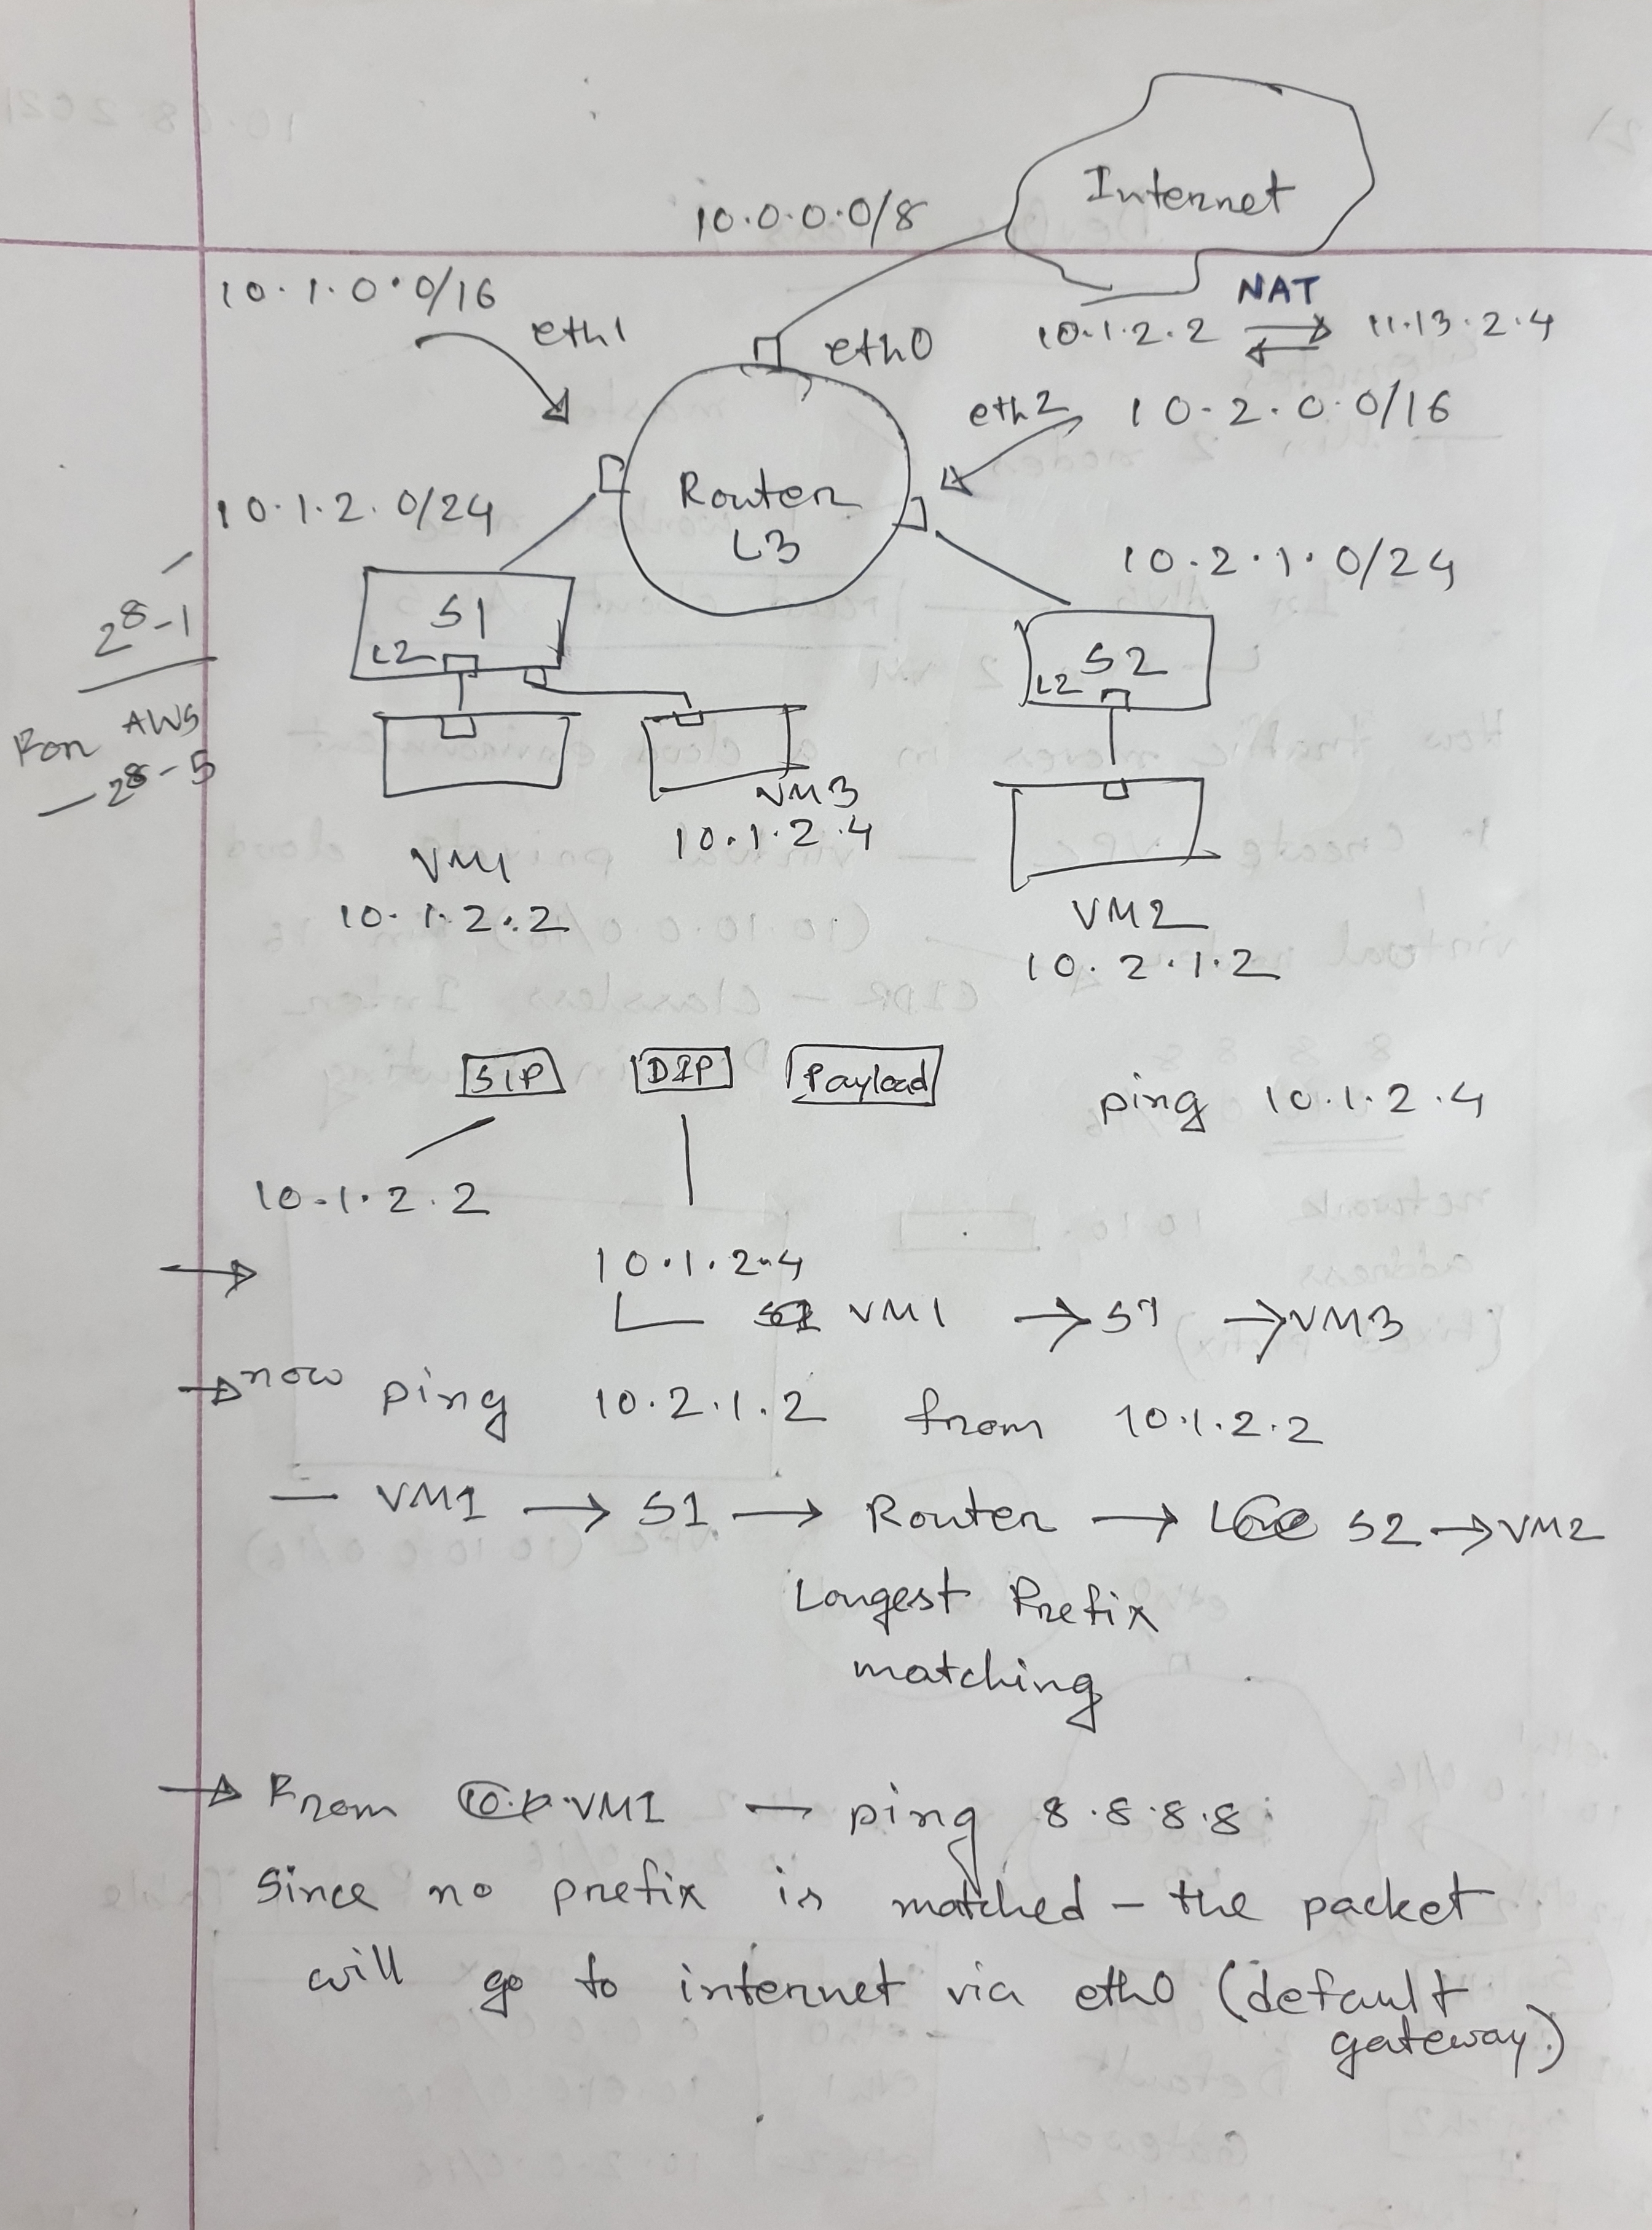 Internet
10.0.0.0/8
10.1.0.0/16
eth1
eth0
NAT
10.1.2.2 ⇄ 11.13.2.4
eth2 10.2.0.0/16
Router
L3
10.1.2.0/24
10.2.1.0/24
2^8-1
S1
L2
S2
L2
For AWS
— 2^8-5
VM3
10.1.2.4
VM1
10.1.2.2
VM2
10.2.1.2
SIP DIP Payload
ping 10.1.2.4
10.1.2.2
→ 10.1.2.4
VM1 → S1 → VM3
→ now ping 10.2.1.2 from 10.1.2.2
— VM1 → S1 → Router → S2 → VM2
Longest Prefix
matching
→ From VM1 — ping 8.8.8.8
Since no prefix is matched - the packet
will go to internet via eth0 (default
gateway.)